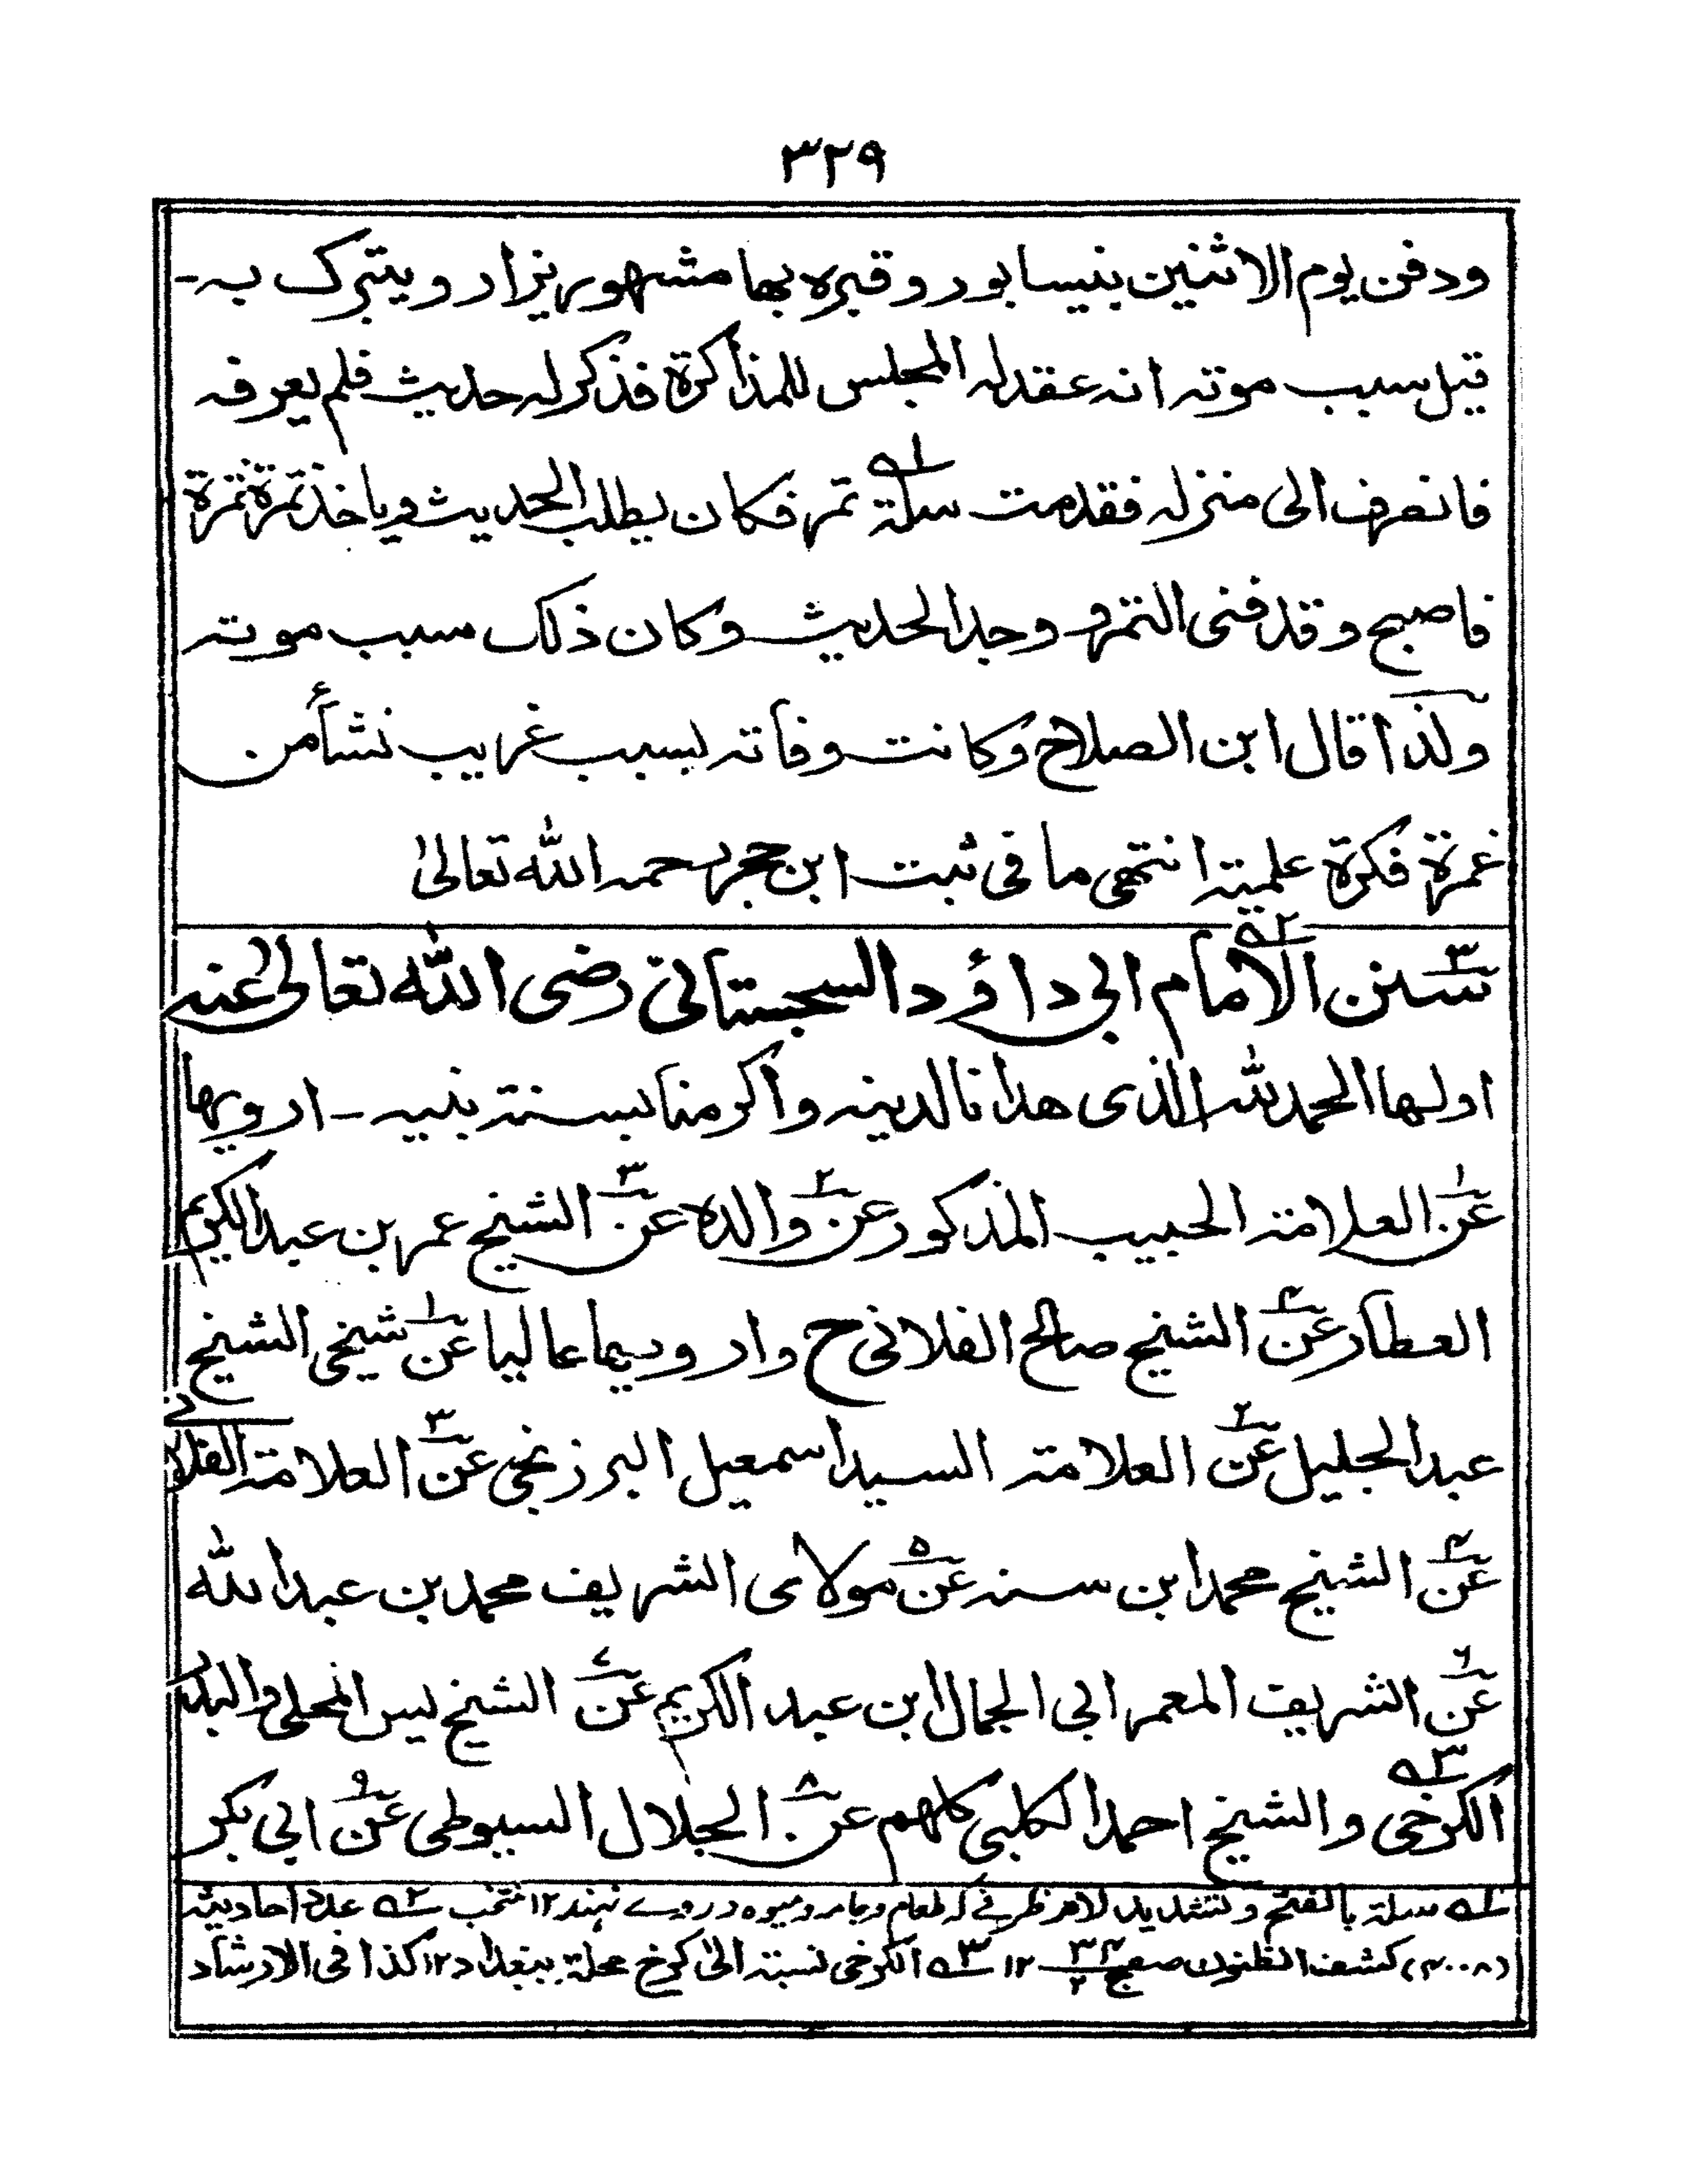 ٣٢٩
ودفن يوم الاثنين بنيسابور وقبره بها مشهور يزار ويتبرك به-
قيل سبب موته انه عقد له المجلس للمذاكرة فذكر له حديث فلم يعرفه
فانصرف الى منزله فقدمت سلة ١ه تمر فكان يطلب الحديث وياخذ تمرة تمرة
فاصبح وقد فنى التمر و وجد الحديث وكان ذلك سبب موته
ولذا قال ابن الصلاح وكانت وفاته بسبب غريب نشأ من
غمرة فكرة علمية انتهى ما فى ثبت ابن حجر رحمه الله تعالىٰ
٣ سنن الامام ٢ه ابي داؤد السجستاني رضى الله تعالىٰ عنه
اولها الحمد لله الذى هدانا لدينه واكرمنا بسنة نبيه - ارويها
١ عن العلامة الحبيب المذكور ٢ عن والده ٣ عن الشيخ عمر بن عبد الكريم
العطار ٤ عن الشيخ صالح الفلانى ح وارويها عاليا ١ عن شيخى الشيخ
عبد الجليل ٢ عن العلامة السيد اسمعيل البرزنجى ٣ عن العلامة الفلانى
٤ عن الشيخ محمد ابن سنه ٥ عن مولاى الشريف محمد بن عبد الله
٦ عن الشريف المعمر ابي الجمال ابن عبد الكريم ٧ عن الشيخ يس المحلى والبدر
الكرخى ٣ه والشيخ احمد الكلبى كلهم ٨ عن الجلال السيوطى ٩ عن ابي بكر
١ه سلة بالفتح وتشديد لام ظرفے كه طعام وجامه وميوه دروے نهند ١٢ منتخب ٢ه عدد احاديثه
(٤٠٠٨) كشف الظنون صفح ٣٤/٢ ١٢ ٣ه الكرخى نسبة الىٰ كرخ محلة ببغداد ١٢ كذا فى الارشاد